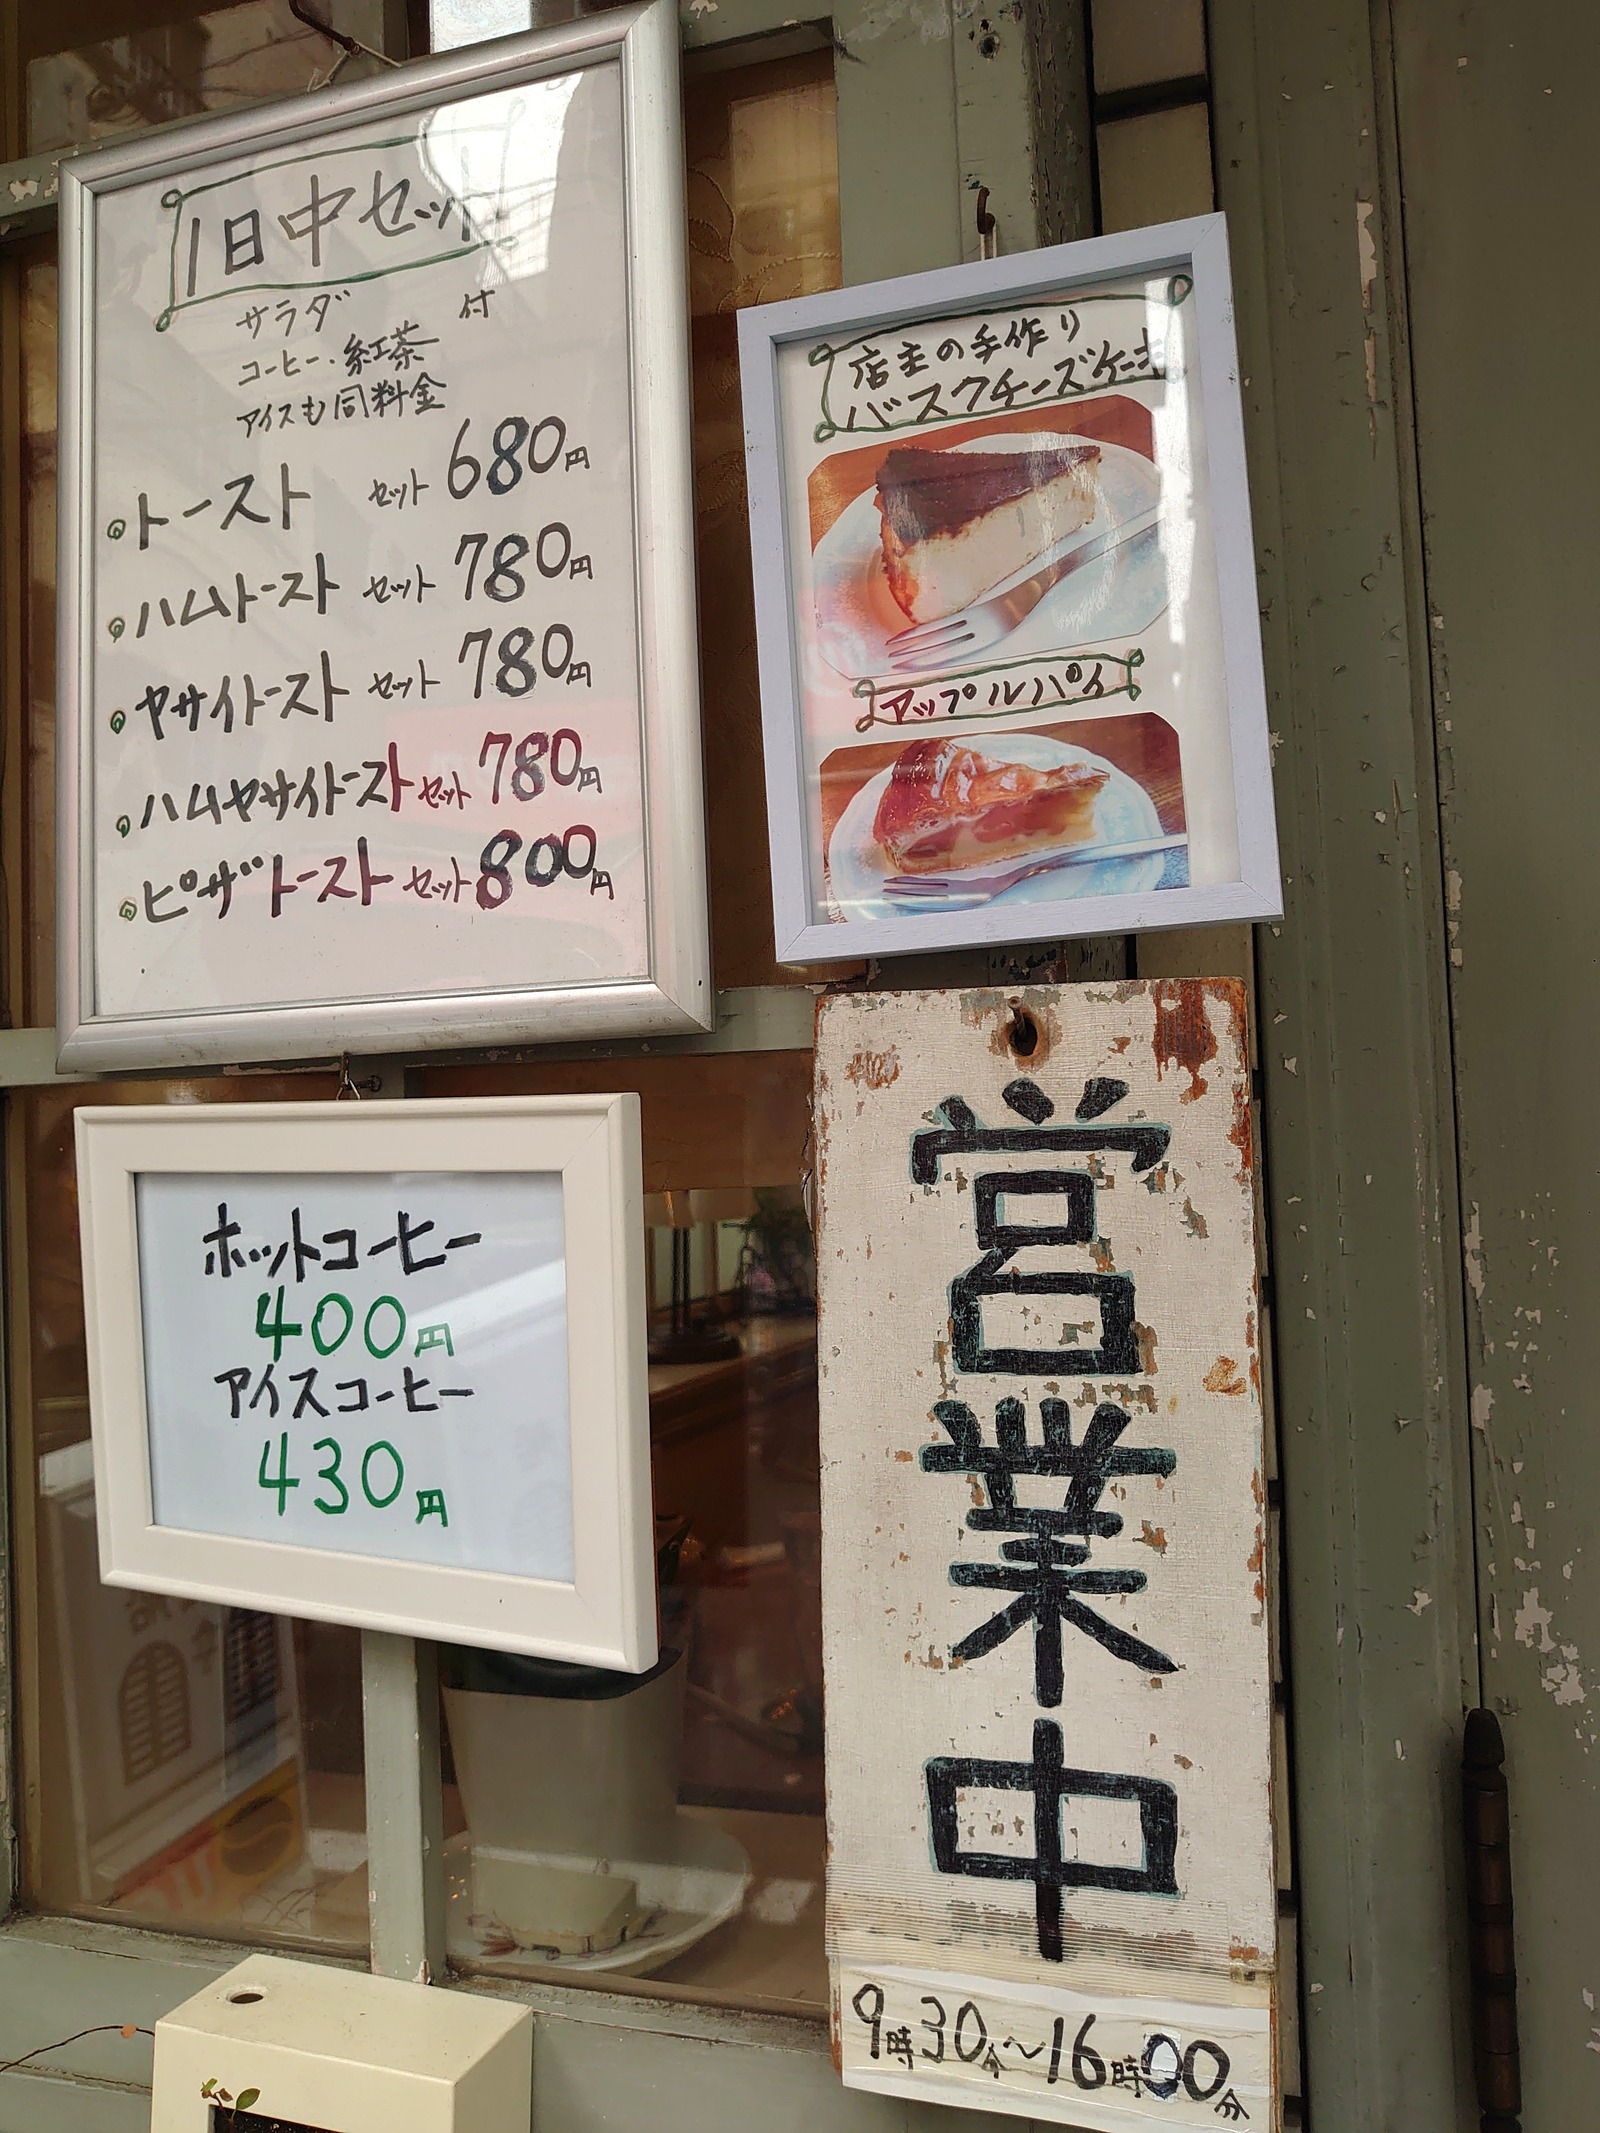 1日中セット
サラダ 付
コーヒー・紅茶
アイスも同料金
トースト セット 680円
ハムトースト セット 780円
ヤサイトースト セット 780円
ハムヤサイトースト セット 780円
ピザトースト セット 800円
店主の手作り
バスクチーズケーキ
アップルパイ
ホットコーヒー
400円
アイスコーヒー
430円
営業中
9時30分~16時00分